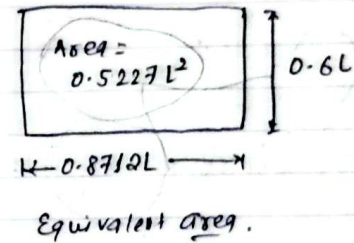 Area =
0.5227 L²
0.6L
0.8712L
Equivalent area.